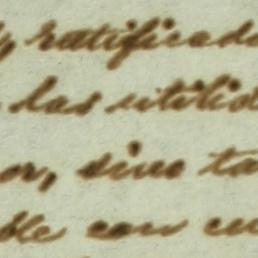 y ratificada
las utilid
or, sino ta
ble con cu